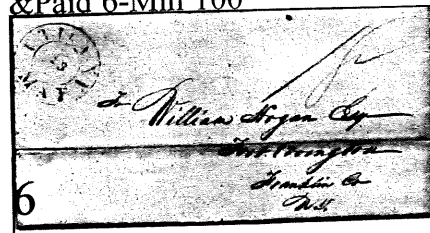 &Paid 6-Mih 100
23
To
William Hogan Esq
Fort Covington
Franklin Co
N.Y.
6